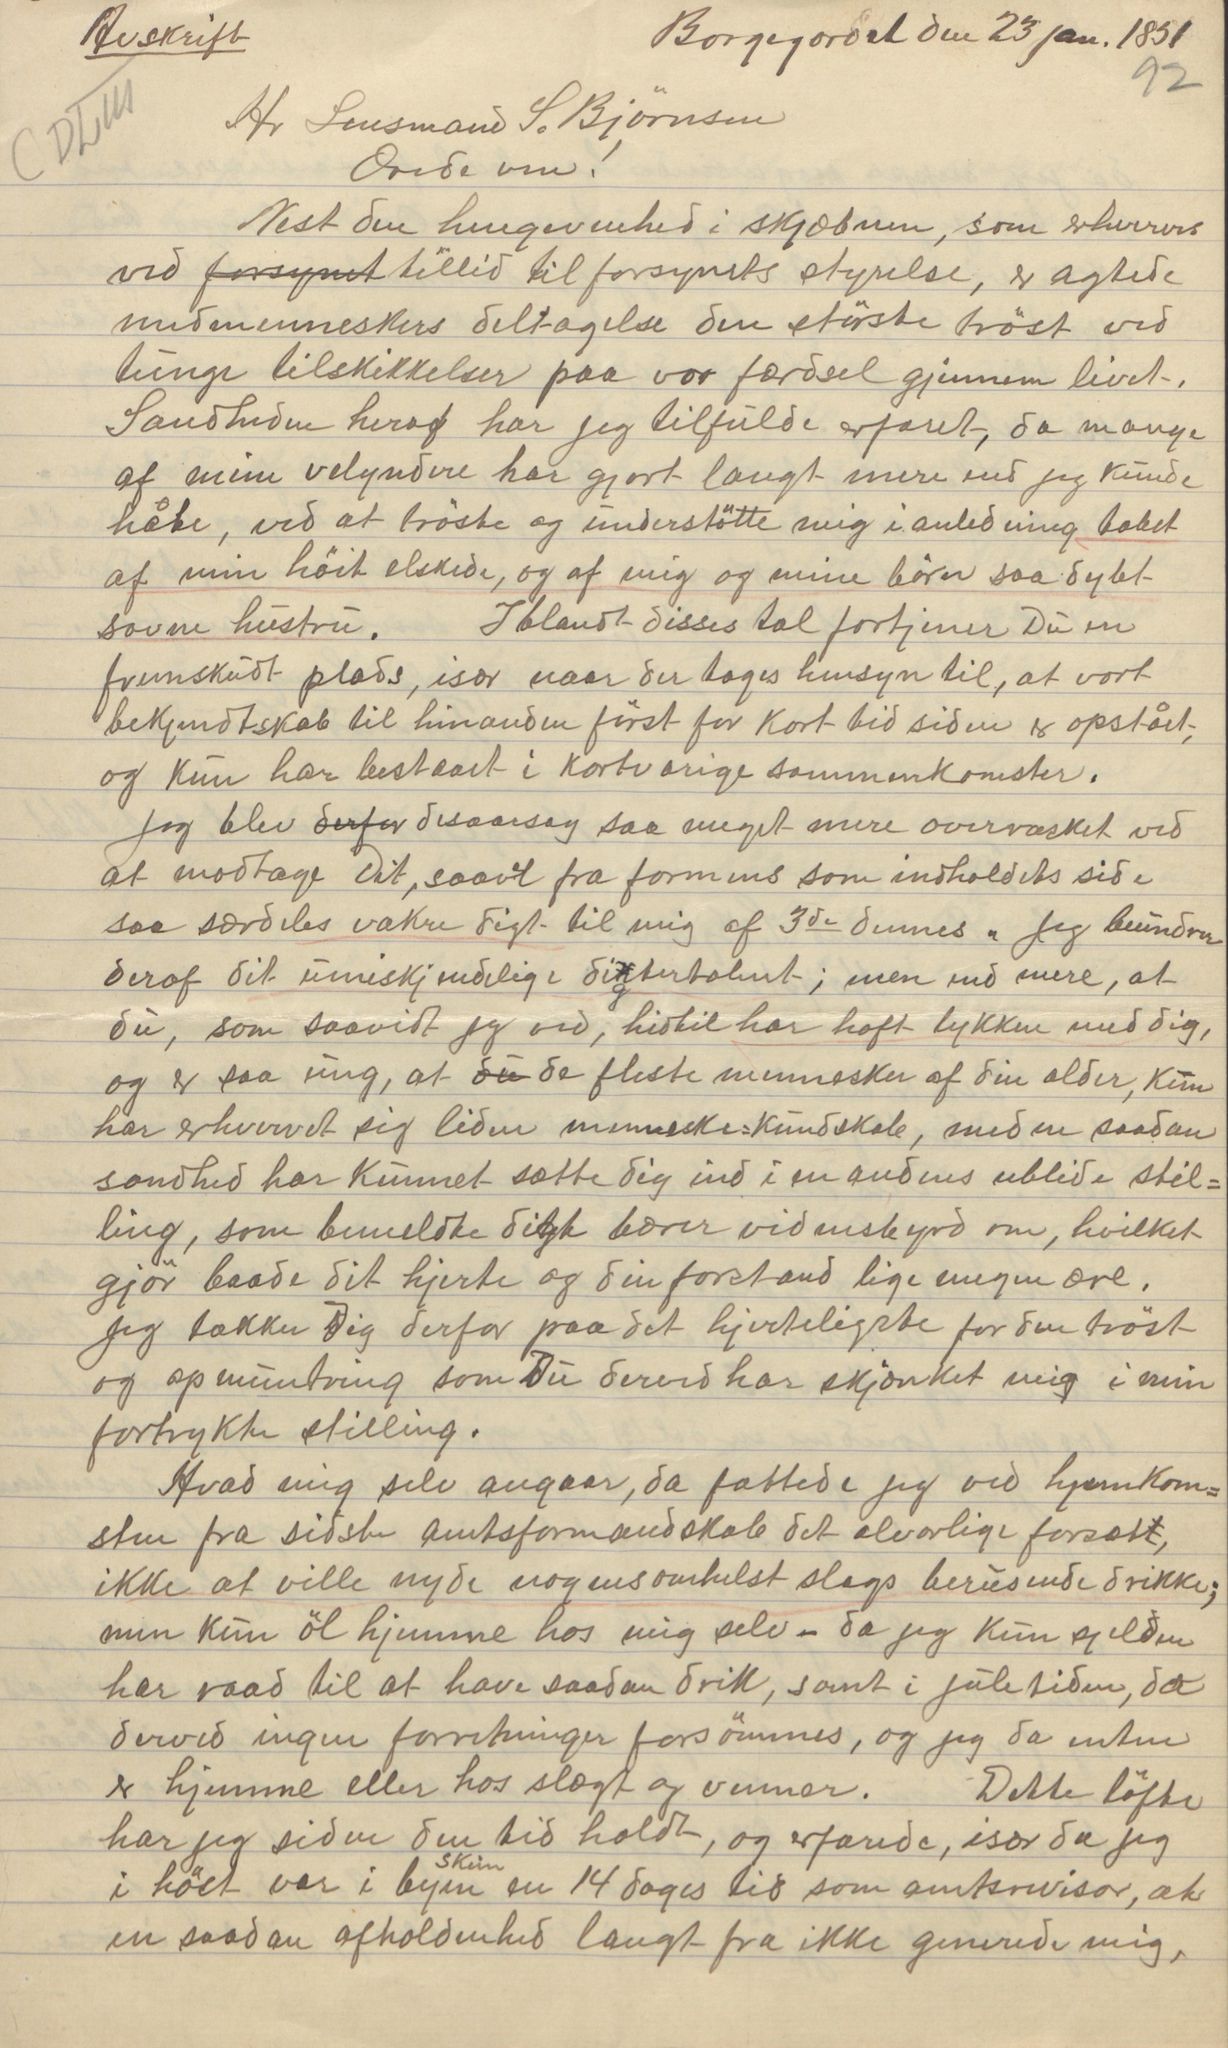 Avskrift
Borgegordet den 23 jan. 1851
92
C DL III
Hr Lensmand S. Björnsen
Ørede vn!
Nest den hengivenhed i skjæbnen, som erhverves
ved forsynet tillid til forsynets styrelse, er agtede
medmenneskers deltagelse den störste tröst ved
tunge tilskikkelser paa vor færdsel gjennem livet.
Sandheden heraf har jeg tilfulde erfaret, da mange
af mine velyndere har gjort langt mere end jeg kunde
håbe, ved at tröste og understötte mig i anledning tabet
af min höit elskede, og af mig og mine börn saa dybt
savne hustru. Iblandt disses tal fortjener Du en
fremskudt plads, især naar der tages hensyn til, at vort
bekjendtskab til hinanden först for kort tid siden er opstået,
og kun har bestaaet i kortvarige sammenkomster.
Jeg blev derfor desaarsag saa meget mere overrasket ved
at modtage Dit, saavel fra formens som indholdets side
saa særdeles vakre digt til mig af 3de dennes. Jeg beundrer
deraf dit umiskjendelige digtertalent; men end mere, at
du, som saavidt jeg ved, hidtil har haft lykken med dig,
og er saa ung, at du de fleste mennesker af din alder, kun
har erhvervet sig liden menneske=kundskab, med en saadan
sandhed har kunnet sætte dig ind i en andens ublide stil=
ling, som bemeldte digt bærer vidnesbyrd om, hvilket
gjör baade dit hjerte og din forstand lige megen ære.
Jeg takker Dig derfor paa det hjerteligste for den tröst
og opmuntring som Du derved har skjænket mig i min
fortrykte stilling.
Hvad mig selv angaar, da fattede jeg ved hjemkom=
sten fra sidste amtsformandskab det alvorlige forsæt,
ikke at ville nyde nogensomhelst slags berusende drikke;
men kun öl hjemme hos mig selv - da jeg kun sjelden
har raad til at have saadan drik, samt i juletiden, da
derved ingen forretninger forsömmes, og jeg da enten
er hjemme eller hos slægt og venner. Dette löfte
har jeg siden den tid holdt, og erfarede, især da jeg
i höst var i byen skun en 14 dages tid som amtsrevisor, at
en saadan afholdenhed langt fra ikke generede mig,